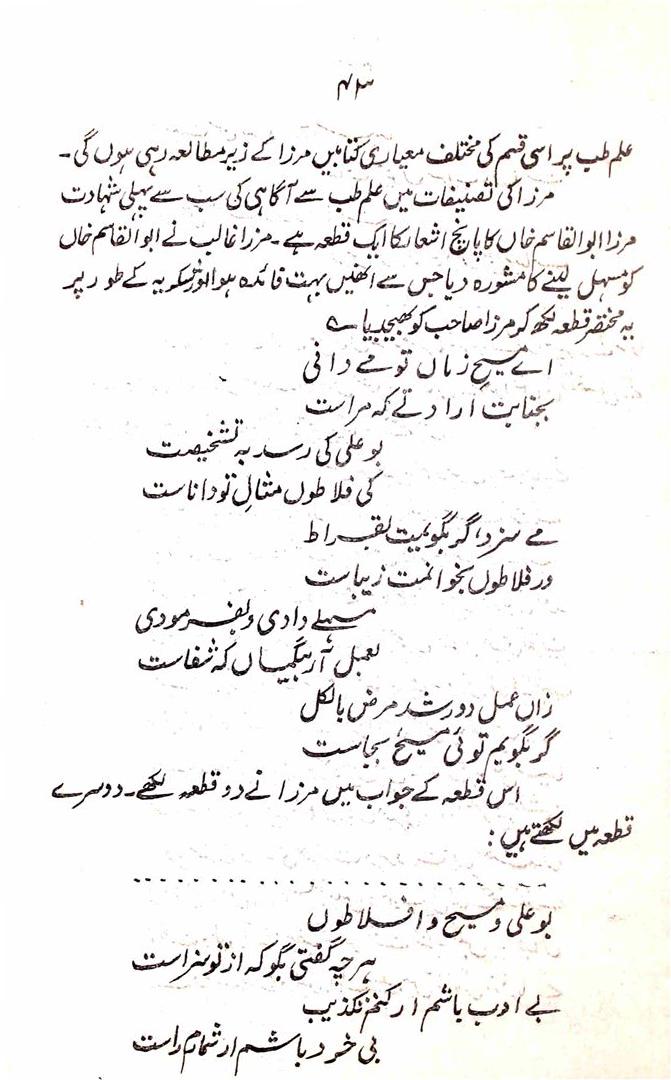 ۴۳
علم طب پر اسی قسم کی مختلف معیاری کتابیں مرزا کے زیر مطالعہ رہی ہوں گی۔
مرزا کی تصنیفات میں علم طب سے آگاہی کی سب سے پہلی شہادت
مرزا ابوالقاسم خاں کا پانچ اشعار کا ایک قطعہ ہے۔ مرزا غالب نے ابوالقاسم خاں
کو مسہل لینے کا مشورہ دیا جس سے انھیں بہت فائدہ ہوا اور شکریہ کے طور پر
یہ مختصر قطعہ لکھ کر مرزا صاحب کو بھیجدیا ے
اے مسیح زماں تو مے دانی
بجنابت ارادتے کہ مراست
بو علی کی رسد بہ تشخیصت
کی فلاطوں مثالِ تو داناست
مے سزد، اگر بگویمیت بقراط
ور فلاطوں بخوانمت زیباست
مسہلے دادی و بفرمودی
بعمل آر بیگمیاں کہ شفاست
زاں عمل دور شد مرض بالکل
گر بگویم توئی مسیح بجاست
اس قطعہ کے جواب میں مرزا نے دو قطعہ لکھے۔ دوسرے
قطعہ میں لکھتے ہیں :
بو علی و مسیح و افلاطوں
ہر چہ گفتی بگو کہ از تو سزاست
بے ادب باشم ار کنم تکذیب
بی خرد باشم ار شمارم راست